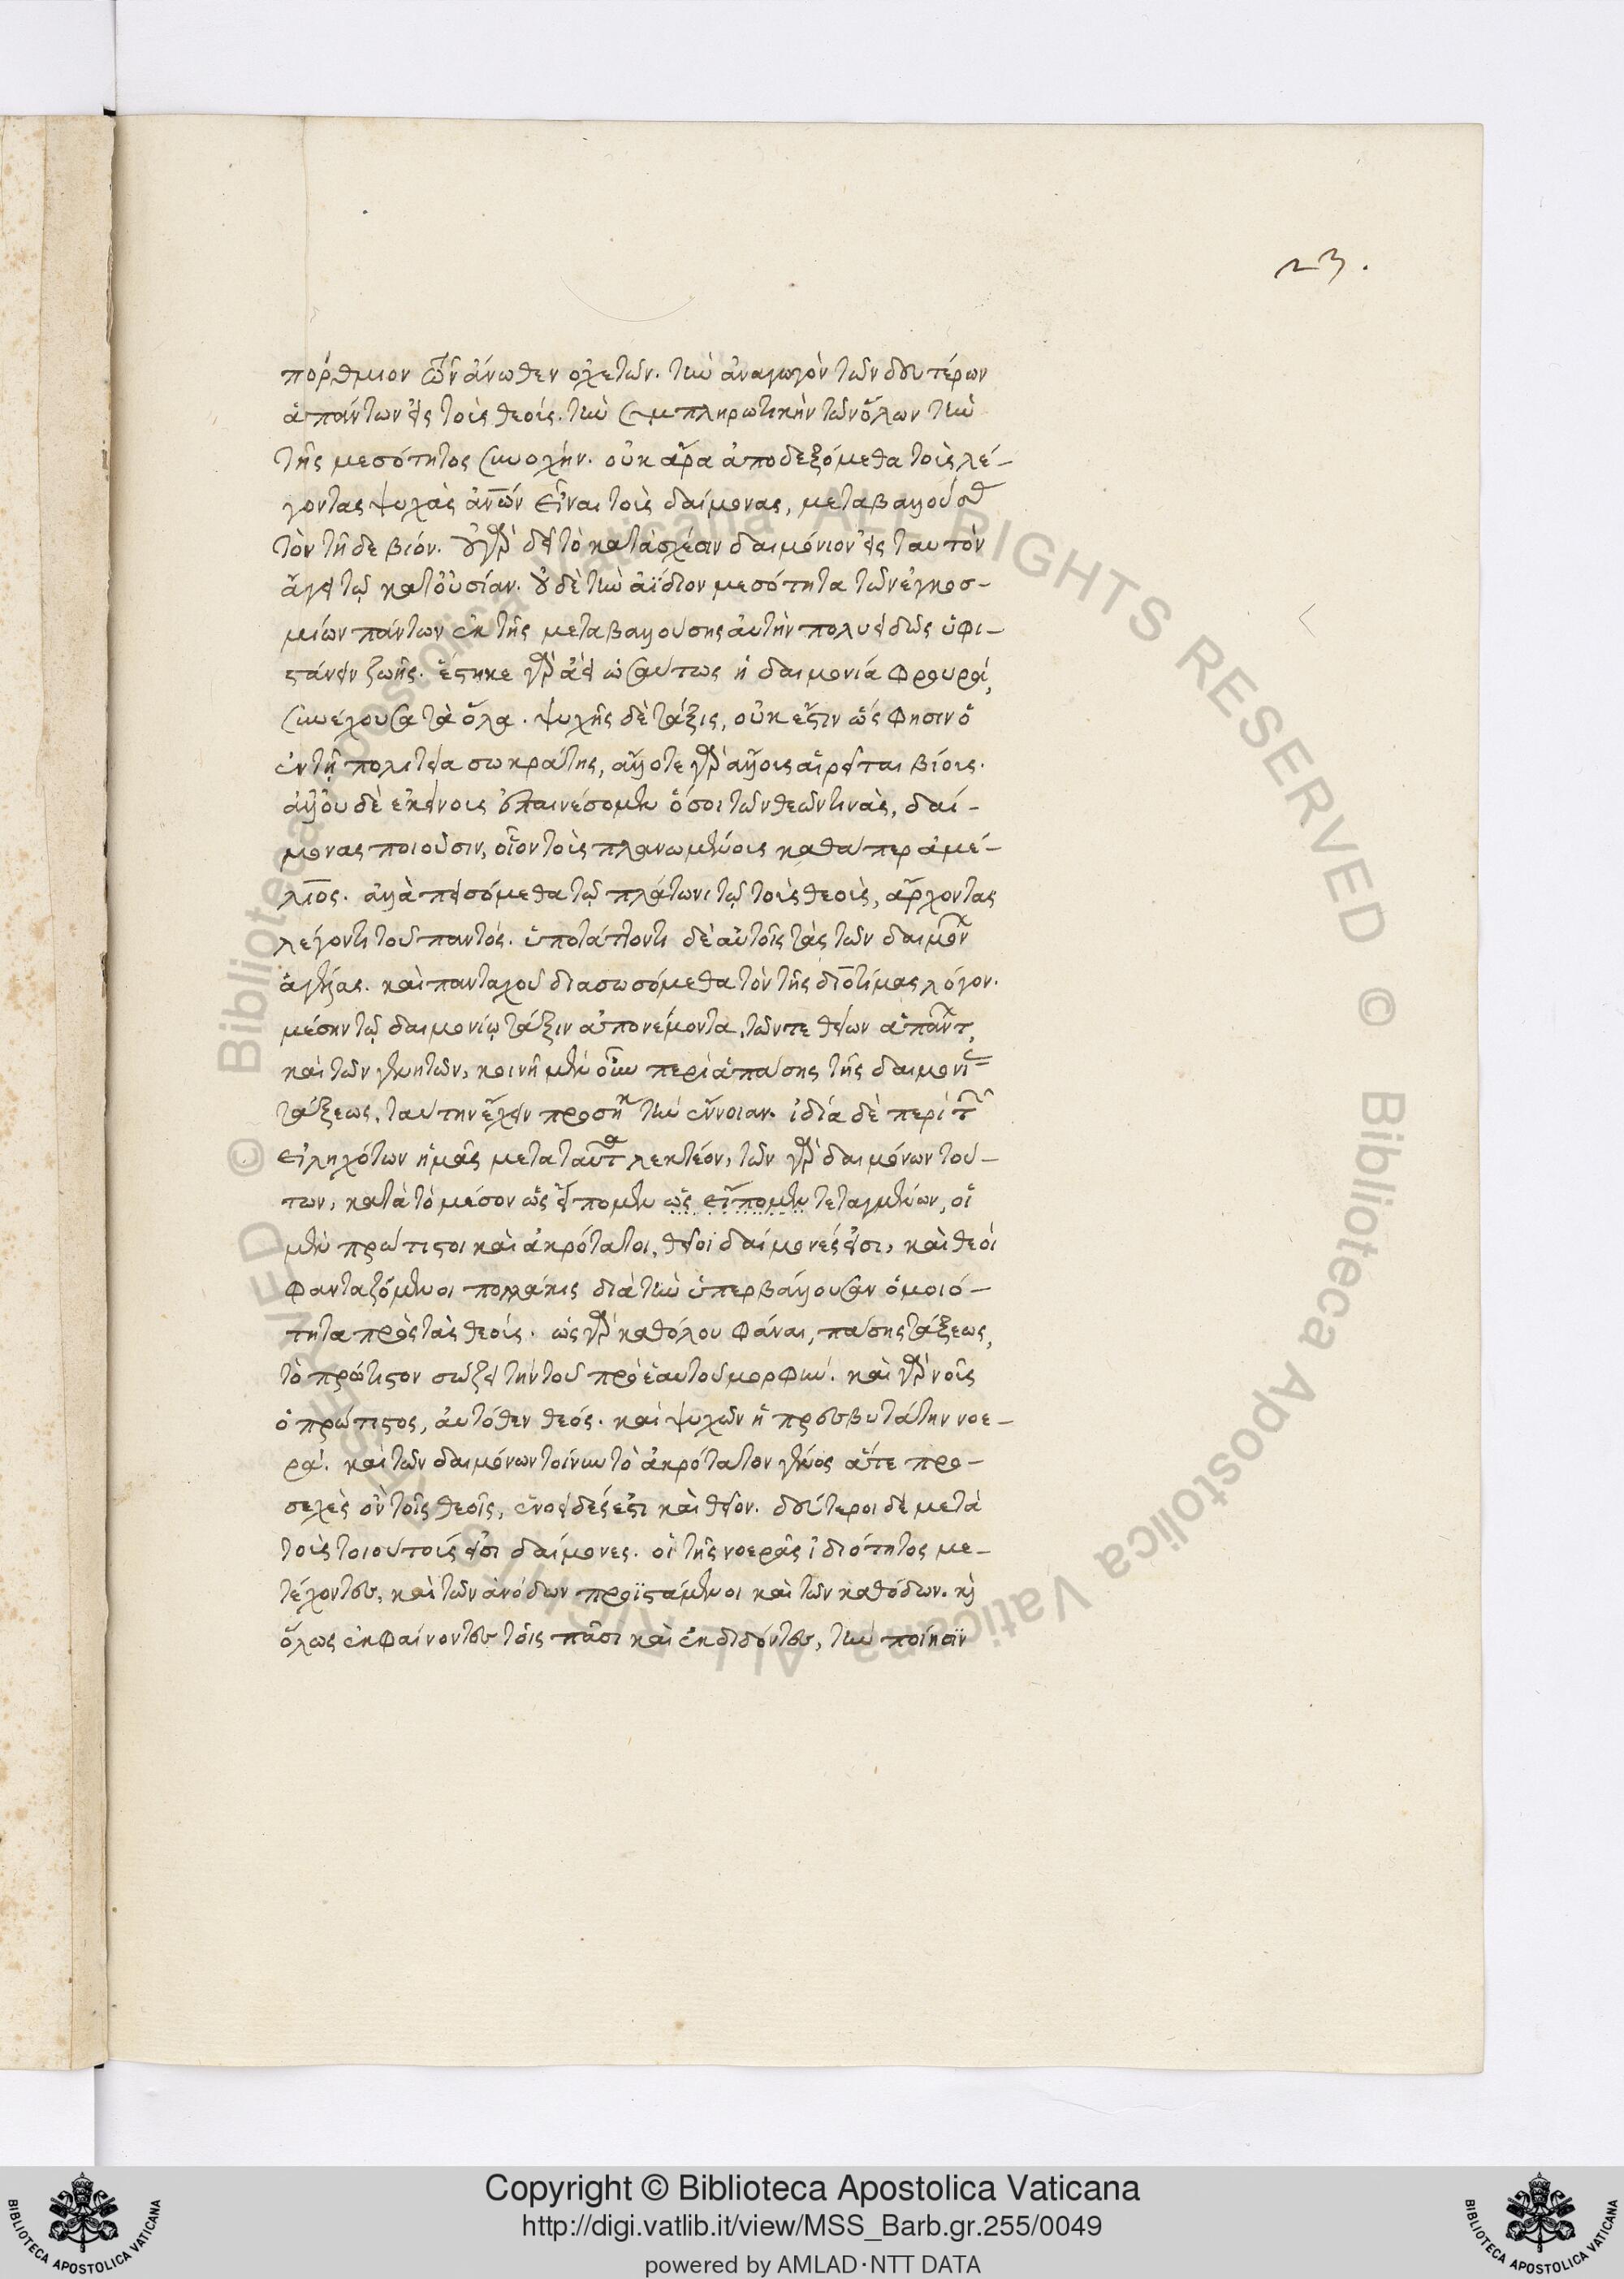 23.
πορθμιον τῶν ἄνωθεν ὀχετῶν. τὴν ἀναγωγὸν τῶν δευτέρων
ἁπάντων εἰς τοὺς θεούς. τὴν συμπληρωτικὴν τῶν ὅλων τὴν
τῆς μεσότητος συνοχήν. οὐκ ἄρα ἀποδεξόμεθα τοὺς λέ-
γοντας ψυχὰς ἀνων εἶναι τοὺς δαίμονας, μεταβαλλούσας
τὸν τῆδε βιόν. οὐ γὰρ δεῖ τὸ κατὰ σχέσιν δαιμόνιον εἰς ταυτὸν
ἄγειν τῷ κατ' οὐσίαν. οὐδὲ τὴν ἀΐδιον μεσότητα τῶν ἐγκοσ-
μίων πάντων ἐκ τῆς μεταβαλλούσης αὐτὴν πολυειδῶς ὑφι-
στάνειν ζωῆς. ἕστηκε γὰρ ἀεὶ ὡσαύτως ἡ δαιμονία φρουρά,
συνέχουσα τὰ ὅλα. ψυχῆς δὲ τάξις, οὐκ ἔστιν ὥς φησιν ὁ
ἐν τῇ πολιτεία σωκράτης, ἄλλοτε γὰρ ἄλλοις αἱρεῖται βίοις.
ἀλλ' οὐδὲ ἐκείνοις ἐπαινέσομεν ὅσοι τῶν θεῶν τινὰς, δαί-
μονας ποιοῦσιν, οἷον τοὺς πλανωμένους καθάπερ ἀμέ-
λιος. ἀλλὰ πεισόμεθα τῷ πλάτωνι τῷ τοὺς θεοὺς, ἄρχοντας
λέγοντι τοῦ παντός. ὑποτάττοντι δὲ αὐτοῖς τὰς τῶν δαιμόνων
ἀγέλας. καὶ πανταχοῦ διασωσόμεθα τὸν τῆς διοτίμας λόγον.
μέσην τῷ δαιμονίῳ τάξιν ἀπονέμοντα, τῶν τε θείων ἁπάντων,
καὶ τῶν θνητῶν, κοινῇ μὲν οὖν περὶ ἁπάσης τῆς δαιμονίας
τάξεως, ταύτην ἔχειν προσήκει τὴν ἔννοιαν. ἰδία δὲ περὶ τῶν
εἰληχότων ἡμᾶς μετὰ ταῦτα λεκτέον, τῶν γὰρ δαιμόνων τού-
των, κατὰ τὸ μέσον ὡς εἴπομεν ὡς εἴπομεν τεταγμένων, οἱ
μὲν πρώτιστοι καὶ ἀκρότατοι, θεῖοι δαίμονές εἰσι, καὶ θεοὶ
φανταζόμενοι πολλάκις διὰ τὴν ὑπερβάλλουσαν ὁμοιό-
τητα πρὸς τὰς θεούς. ὡς γὰρ καθόλου φάναι, πάσης τάξεως,
τὸ πρώτιστον σώζει τὴν τοῦ πρὸ ἑαυτοῦ μορφήν. καὶ γὰρ νοῦς
ὁ πρώτιστος, αὐτόθεν θεός. καὶ ψυχῶν ἡ πρεσβυτάτην νοε-
ρά. καὶ τῶν δαιμόνων τοίνυν τὸ ἀκρότατον γένος ἅτε προ-
σεχὲς ὂν τοῖς θεοῖς, ἑνοειδές ἐστι καὶ θεῖον. δεύτεροι δὲ μετὰ
τοὺς τοιούτοις εἰσι δαίμονες. οἱ τῆς νοερᾶς ἰδιότητος με-
τέχοντες, καὶ τῶν ἀνόδων προϊστάμενοι καὶ τῶν καθόδων. καὶ
ὅλως ἐκφαίνοντες τοῖς πᾶσι καὶ ἐκδιδόντες, τὴν ποίησιν
Copyright © Biblioteca Apostolica Vaticana
http://digi.vatlib.it/view/MSS_Barb.gr.255/0049
powered by AMLAD·NTT DATA